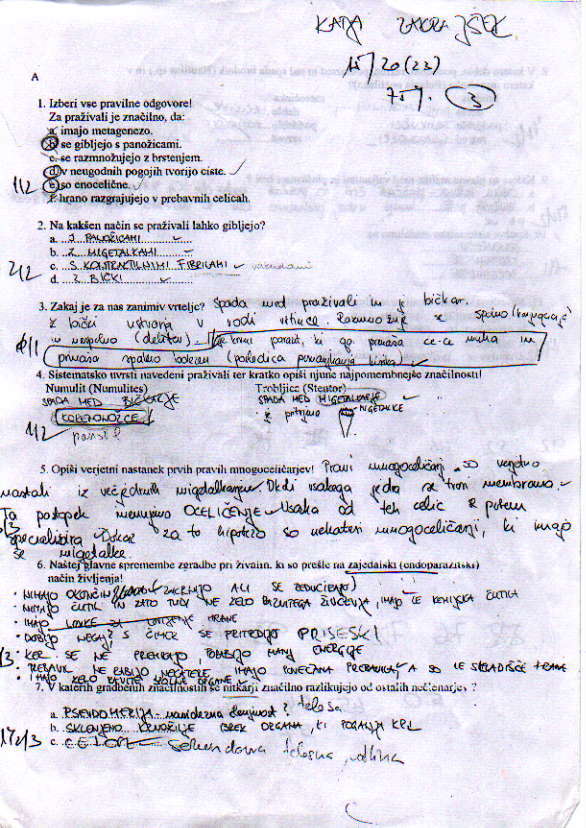 KATJA ZAKRAJŠEK
15/20 (23)
75%. 3
A
1. Izberi vse pravilne odgovore!
Za praživali je značilno, da:
a. imajo metagenezo.
b. se gibljejo s panožicami.
c. se razmnožujejo z brstenjem.
d. v neugodnih pogojih tvorijo ciste.
e. so enocelične.
f. hrano razgrajujejo v prebavnih celicah.
2. Na kakšen način se praživali lahko gibljejo?
a. S PANOŽICAMI
b. Z MIGETALKAMI
c. S KONTRAKTILNIMI FIBRILAMI
d. Z BIČKI
2/2
3. Zakaj je za nas zanimiv vrtelje? Spada med praživali in je bičkar.
Z bički ustvarja v vodi vrtince. Razmnožuje se spolno (konjugacija)
in nespolno (delitev)
krvni parazit, ki ga prenaša ce-ce muha in
4. Sistematsko uvrsti navedeni praživali ter kratko opiši njune najpomembnejše značilnosti!
Numulit (Numulites) Trobljica (Stentor)
SPADA MED BIČKARJE SPADA MED MIGETALKARJE
KORENONOŽCE je pritrjeno MIGETALKE
1/2
5. Opiši verjetni nastanek prvih pravih mnogoceličarjev! Pravi mnogoceličarji so verjetno
nastali iz večjedrnih migetalkarjev. Okoli vsakega jedra se tvori membrana.
Ta postopek imenujemo OCELIČENJE. Vsaka od teh celic se potem
specializira. Dokaz za to hipotezo so nekateri mnogoceličarji, ki imajo
še migetalke.
6. Naštej glavne spremembe zgradbe pri živalih, ki so prešle na zajedalski (endoparazitski)
način življenja!
NIMAJO OKONČIN ZAKRNIJO ALI SE REDUCIRAJO)
NIMAJO ČUTIL IN ZATO TUDI NE ZELO RAZVITEGA ŽIVČEVJA, IMAJO LE KEMIJSKA ČUTILA
IMAJO HRANE
DOBIJO NEKAJ S ČIMER SE PRITRDIJO PRISESKI
KER SE NE PREMIKAJO, PORABIJO MANJ ENERGIJE
IMAJO ZELO RAZVITE SPOLNE ORGANE
7. V katerih gradbenih značilnostih se nitkarji značilno razlikujejo od ostalih nečlenarjev?
a. PSEUDOMERIJA - navidezna členjenost? telesa
b. SKLENJENO KRVOŽILJE BREZ ORGANA, KI POGANJA KRI
c. sekundarna telesna votlina